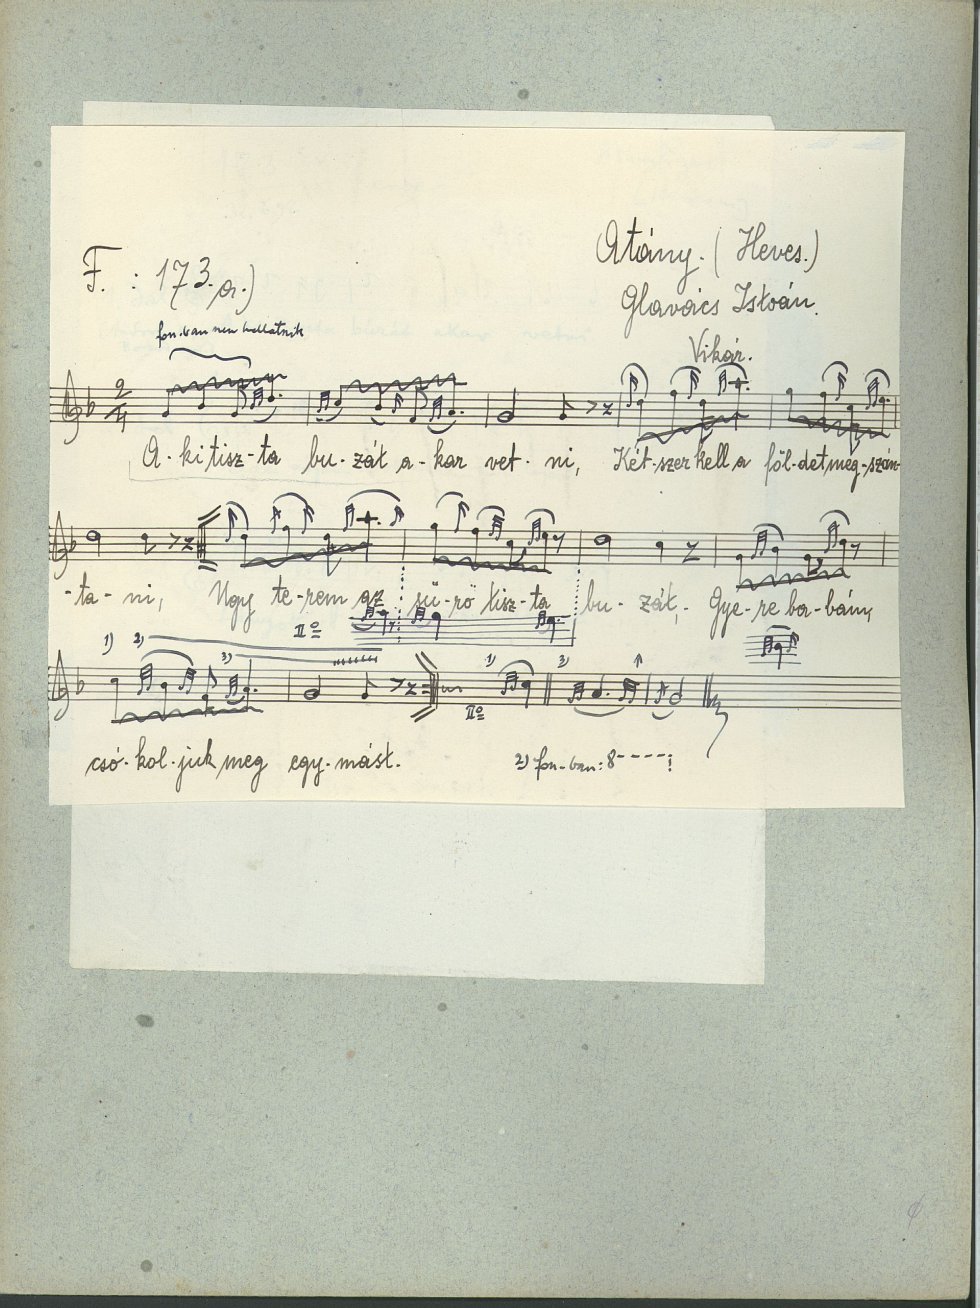 Atány. (Heves.)
F. : 173. a.)
Glavács István.
fon.-ban nem hallatszik
Vikár.
2/4
A-ki tisz-ta bu-zát a-kar vet-ni, Két-szer kell a föl-det meg-szán-
-ta-ni, Ugy te-rem az sü-rö tisz-ta bu-zát, Gye-re ba-bám,
IIº
1) 2)
3)
1) 3)
IIº
csó-kol-juk meg egy-mást.
2) fon-ban: 8----;